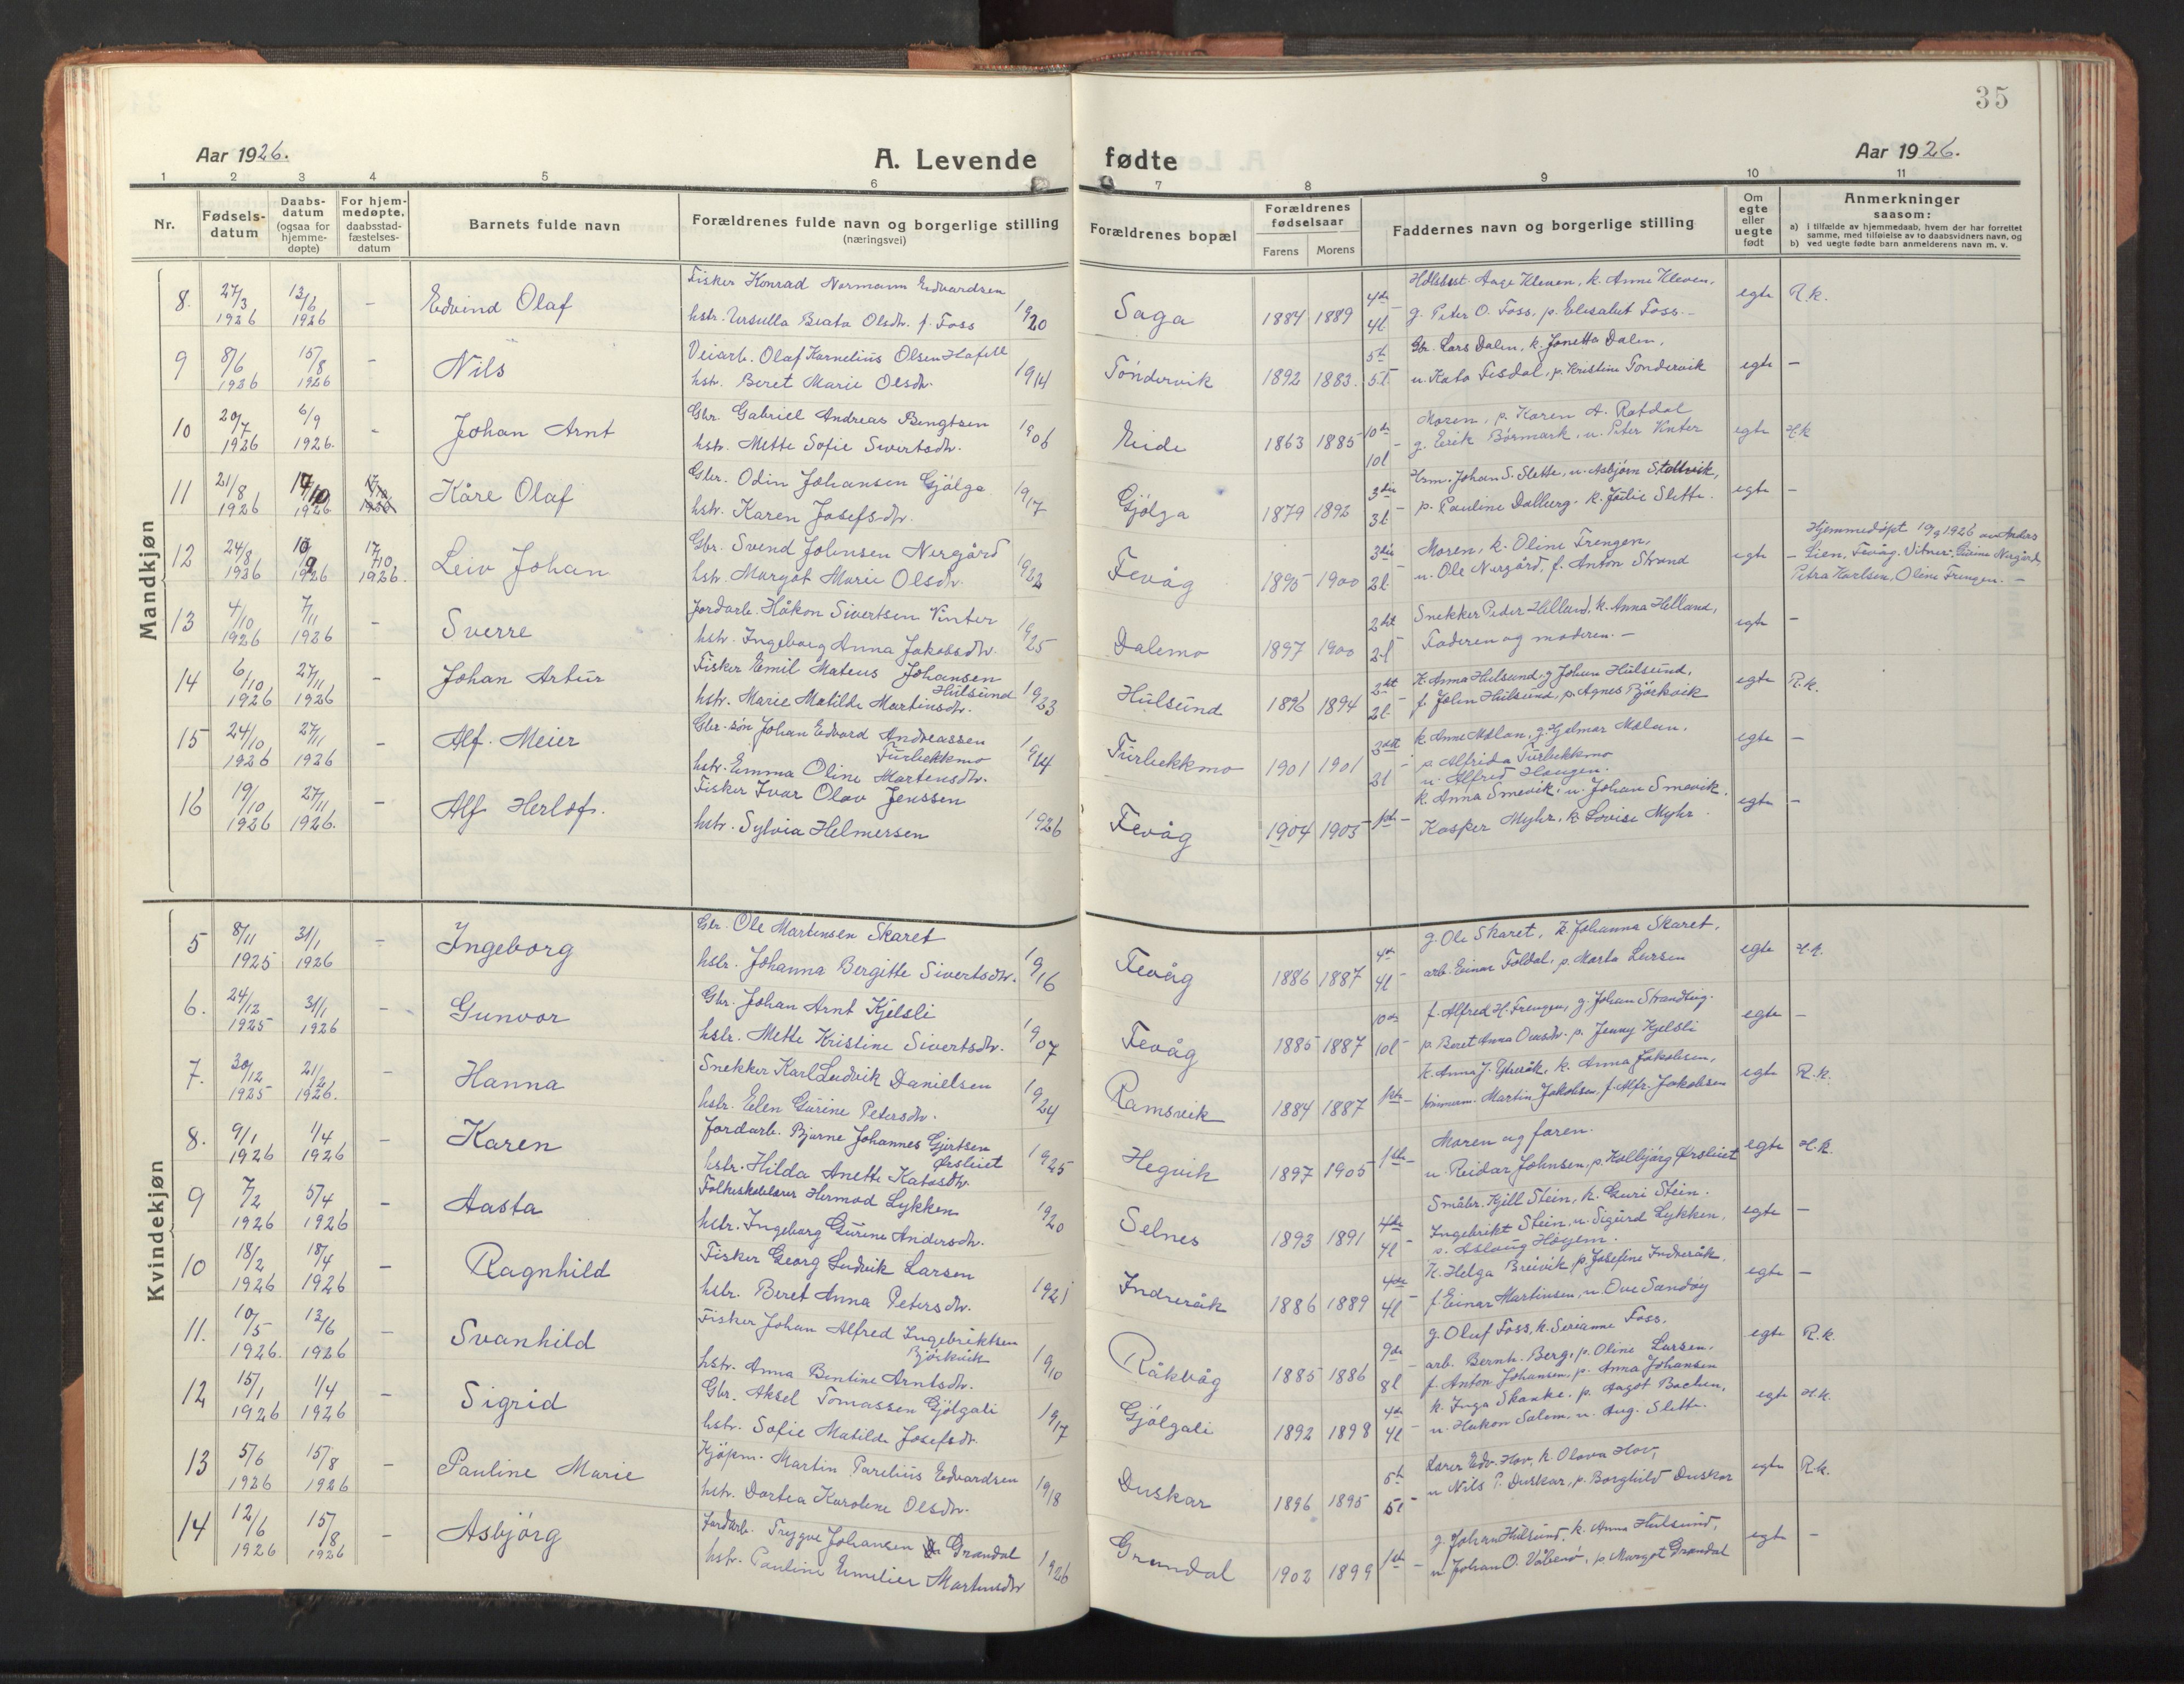 35
Aar 1926.
A. Levende fødte
Aar 1926.
1 2 3 4 5 6 7 8 9 10 11
Nr.
Fødsels-datum
Daabs-datum (ogsaa for hjemme-døpte)
For hjem-medøpte, daabsstad-fæstelses-datum
Barnets fulde navn
Forældrenes fulde navn og borgerlige stilling (næringsvei)
Forældrenes bopæl
Forældrenes fødselsaar
Farens Morens
Faddernes navn og borgerlige stilling
Om egte eller uegte født
Anmerkninger saasom:
a) i tilfælde av hjemmedaab, hvem der har forrettet samme, med tilføielse av to daabsvidners navn, og
b) ved uegte fødte barn anmelderens navn m. v.
Mandkjøn
8. 27/3 1926 13/6 1926 - Edvind Olaf
Fisker Konrad Normann Edvardsen
hstr. Ursulla Beata Olsdtr. f. Foss 1920
Saga 1884 1889 4de 4l -
Aage Kleven, k. Anne Kleven,
g. Peter O. Foss, p. Elisabet Foss. -
egte R.k.
9 8/6 1926 15/8 1926 - Nils
Veiarb. Olaf Kornelius Olsen Hafell
hstr. Beret Marie Olsdtr. 1914
Töndervik 1892 1883. 5te 5l.
Gbr. Lars Dalen, k. Jonetta Dalen,
u. Kato Fesdal, p. Kristine Tondervik
egte -
10 20/7 1926 6/9 1926. - Johan Arnt
Gbr. Gabriel Andreas Bengtsen
hstr. Mette Sofie Sivertsdtr. 1906
Eide 1863 1885 10de 10l -
Moren, p. Karen A. Ratdal
g. Eirik Börmark, u. Peter Vinter
egte H.k
11 21/8 1926 17/10 1926 17/10 1926 Kåre Olaf
Gbr. Odin Johansen Gjölga
hstr. Karen Josefsdtr. 1917
Gjölga 1879 1892 3die 3l. -
Hrm. Johan S. Slette, u. Asbjörn Stallvik,
p. Pauline Dalberg. k. Julie Slette.
egte -
12 24/8 1926 19/9 1926 17/10 1926. Leiv Johan
Gbr. Svend Johnsen Nergård
hstr. Margot Marie Olsdtr. 1922
Fevåg 1895 1900 3die 2l.
Moren, k. Oline Frengen,
u. Ole Nergård, f. Anton Strand
egte -
Hjemmedöpt 19/9 1926 av Anders
Lien, Fevåg. Vitner: Nergård,
Petra Karlsen, Oline Frengen. -
13 4/10 1926 7/11 1926 - Sverre
Jordarb. Håkon Sivertsen Vinter
hstr. Ingeborg Anna Jakobsdtr. 1925
Dalemo 1897 1900 2det 2.l
Snekker Peder Helland, k. Anna Helland,
Faderen og moderen. -
egte -
14 6/10 1926 27/11 1926 - Johan Artur
Fisker Emil Mateus Johansen
Hulsund
hstr. Marie Matilde Martinsdtr. 1923
Hulsund 1896 1894 2det 2l. -
K. Anna Hulsund, g Johan Hulsund,
f. John Hulsund, p. Agnes Björkvik
egte R.k.
15 24/10 1926 27/11 1926 - Alf. Meier
Gbr.-søn Johan Edvard Andreassen
Furbekkmo
hstr. Emma Oline Martensdtr. 1914
Furbekkmo 1901 1901 2det 2l -
k. Anne Målan, g Hjelmar Målan,
p Alfrida Furbekkmo
u. Alfred Haugen.
egte -
16 19/10 1926 27/11 1926. - Alf Herlof.
Fisker Ivar Olav Jenssen
hstr. Sylvia Helmersen 1926
Fevåg 1904 1905 1ste -
k. Anna Smevik, u. Johan Smevik.
Kasper Myhr, k Lovise Myhr
egte -
Kvindekjøn
5 8/11 1925 31/1 1926 - Ingeborg
Gbr. Ole Martensen Skaret
hstr. Johanna Bergitte Sivertsdtr. 1916
Fevåg 1886 1887 4de 4l -
g. Ole Skaret, k Johanna Skaret,
arb. Einar Foldal, p. Marta Larsen
egte H.k.
6. 24/12 1925 31/1 1926 - Gunvor
Gbr. Johan Arnt Kjelsli
hstr. Mette Kristine Sivertsdtr. 1907
Fevåg 1885 1887 10de 10l -
f. Alfred H. Frengen, g. Johan Strandeng.
p. Beret Anna p. Jenny Kjelsli
egte -
7. 30/12 1925 21/2 1926. - Hanna
Snekker Karl Ludvik Danielsen
hstr. Elen Gurine Petersdtr. 1924
Ramsvik 1884 1887 1ste -
k. Anna J. k. Anna Jakobsen,
Martin Jakobsen, f. Alfr. Jakobsen
egte R.k.
8. 9/1 1926 1/4 1926 - Karen
Jordarb. Bjarne Johannes Gjertsen
Örsleiet
hstr. Hilda Anette Katosdtr. 1925
Hegvik 1897 1905 1ste -
Moren og faren.
u. Reidar Johnsen, p. Kolbjörg Ørsleiet
egte H.k.
9 7/2 1926 5/4 1926 - Aasta
Folkeskolelærer Hermod Lykken
hstr. Ingeborg Gurine Andersdtr. 1920
Selnes 1893 1891 4de 4l -
Småbr. Kjell Stein, k. Guri Stein.
Ingebrikt Stein, u. Sigurd Lykken,
p. Aslaug Høyem.
egte -
10 18/2 1926 18/4 1926 - Ragnhild
Fisker Georg Ludvik Larsen
hstr. Beret Anna Petersdtr. 1921
Indreråk 1886 1889 4de 4l -
K. Helga Breivik, p. Josefine Indreråk,
f. Einar Martinsen, u. Ove Sandøy
egte -
11. 10/5 1926. 13/6 1926 - Svanhild
Fisker Johan Alfred Ingebriktsen
Björkvik
hstr. Anna Bentine Arntsdtr. 1910
Råkvåg 1885 1886 9de 8l -
g. Oluf Foss, k. Serianne Foss,
arb. Bernh. Berg, p. Oline Larsen,
f. Anton Johansen, p. Anna Johansen
egte R.k.
12 15/1 1926 1/4 1926 - Sigrid
Gbr. Aksel Tomassen Gjölgali
hstr. Sofie Matilde Josefsdtr. 1917
Gjölgali 1892 1898 4de 4l -
k. Inga Skanke, p. Aagot Bachen,
u. Hakon Salem, u. Aug. Slette.
egte H.k.
13 5/6 1926 15/8 1926 - Pauline Marie
Kjöpm. Martin Parelius Edvardsen
hstr. Dortea Karoline Olsdtr. 1918
Duskar 1896 1895 5te 5l -
Lærer Edv. Hov, k. Olava Hov,
u Nils P. Duskar, p. Borghild Duskar
egte R.k.
14 12/6 1926 15/8 1926 - Asbjörg
Jordarb. Trygve Johansen Grandal
hstr. Pauline Emelie Martinsdtr 1926
Grandal 1902 1899 1ste -
g. Johan Hulsund, k. Anna Hulsund,
u. Johan O. Våberö, p. Margot Grandal
egte -